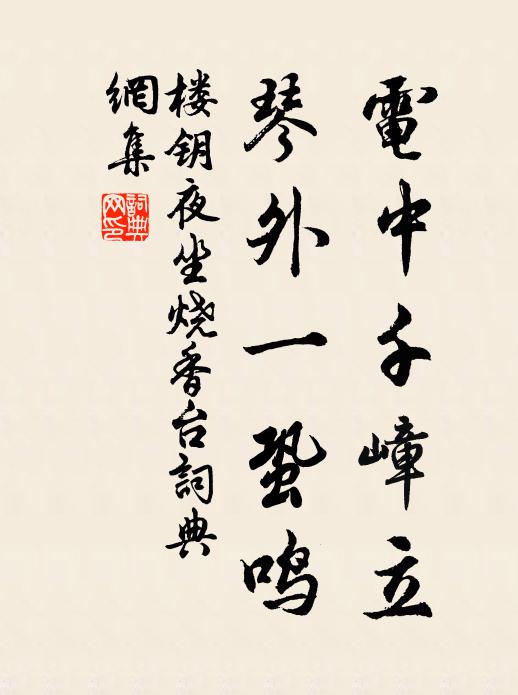 電中千嶂立
琴外一蛩鳴
楼钥夜坐烧香台詞典
網集
詞典网印